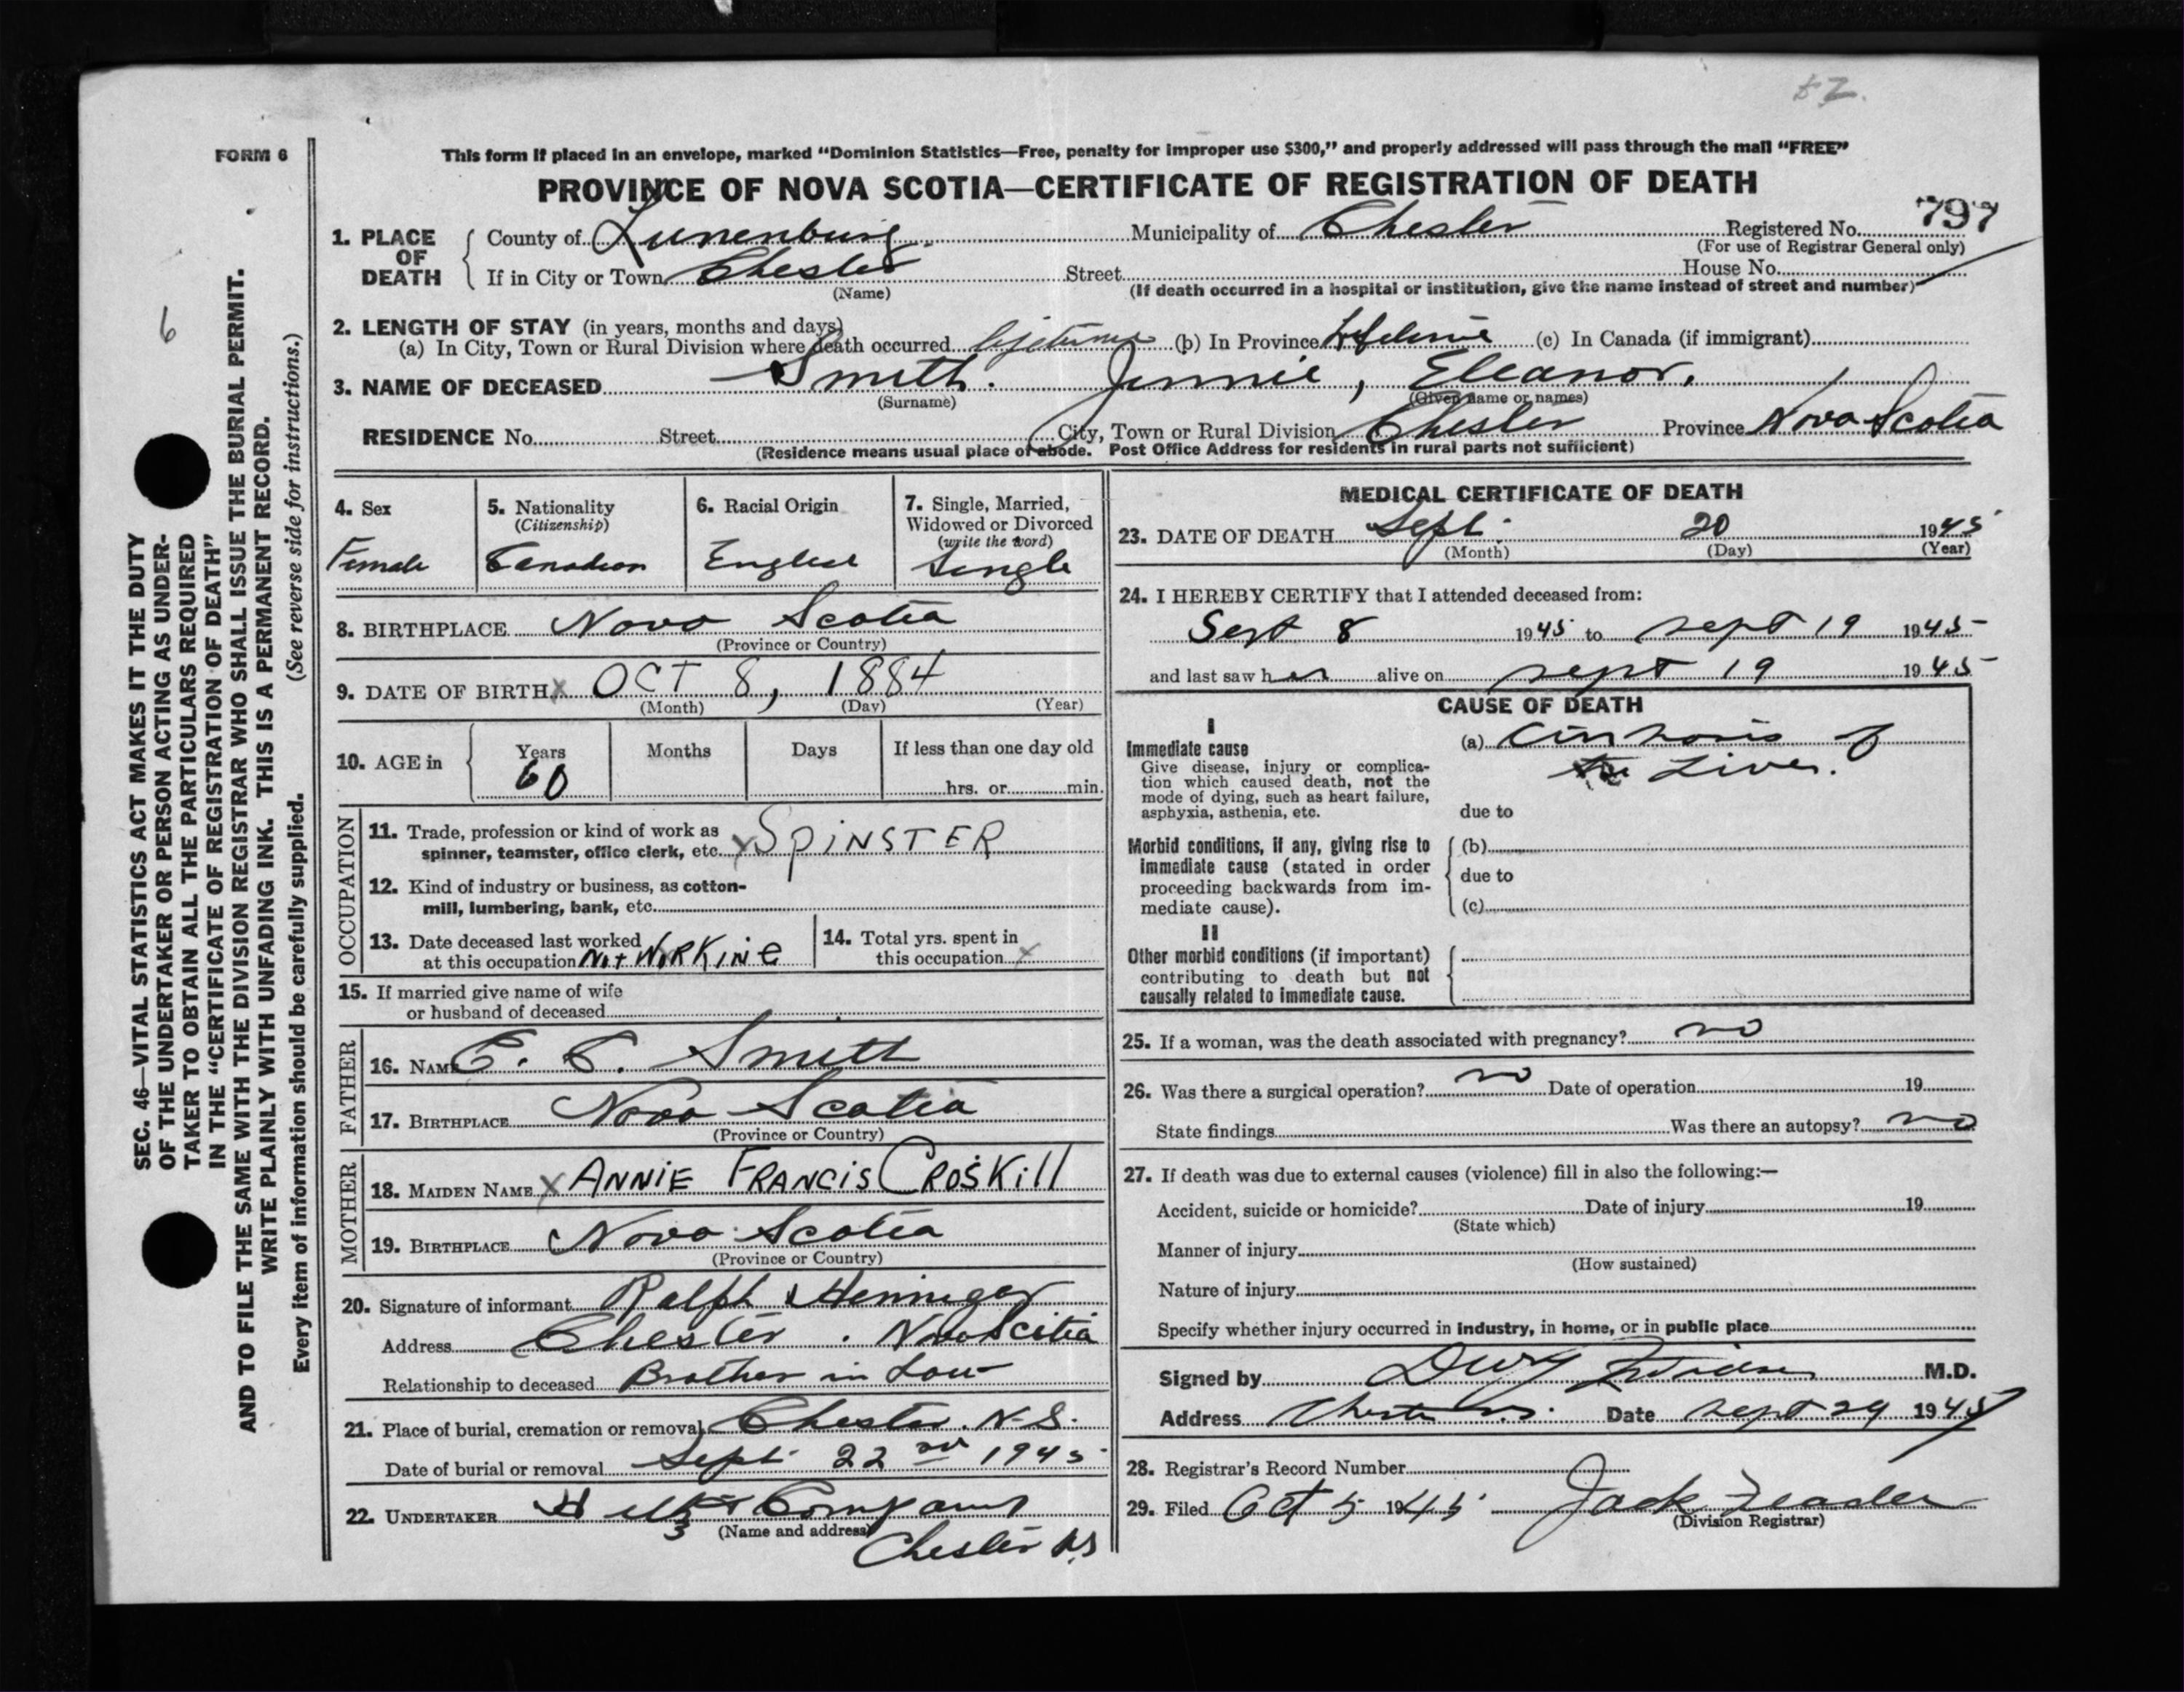 52.
FORM 6
This form if placed in an envelope, marked "Dominion Statistics—Free, penalty for improper use $300," and properly addressed will pass through the mail "FREE"
PROVINCE OF NOVA SCOTIA—CERTIFICATE OF REGISTRATION OF DEATH
797
1. PLACE OF DEATH
County of Lunenburg. Municipality of Chester Registered No.
(For use of Registrar General only)
If in City or Town Chester Street House No.
(Name) (If death occurred in a hospital or institution, give the name instead of street and number)
2. LENGTH OF STAY (in years, months and days)
(a) In City, Town or Rural Division where death occurred lifetime (b) In Province (c) In Canada (if immigrant)
3. NAME OF DECEASED Smith. Jennie, Eleanor.
(Surname) (Given name or names)
RESIDENCE No. Street City, Town or Rural Division Chester Province Nova Scotia
(Residence means usual place of abode. Post Office Address for residents in rural parts not sufficient)
6
SEC. 46—VITAL STATISTICS ACT MAKES IT THE DUTY
OF THE UNDERTAKER OR PERSON ACTING AS UNDER-
TAKER TO OBTAIN ALL THE PARTICULARS REQUIRED
IN THE "CERTIFICATE OF REGISTRATION OF DEATH"
AND TO FILE THE SAME WITH THE DIVISION REGISTRAR WHO SHALL ISSUE THE BURIAL PERMIT.
WRITE PLAINLY WITH UNFADING INK. THIS IS A PERMANENT RECORD.
Every item of information should be carefully supplied. (See reverse side for instructions.)
4. Sex
Female
5. Nationality
(Citizenship)
Canadian
6. Racial Origin
English
7. Single, Married,
Widowed or Divorced
(write the word)
Single
8. BIRTHPLACE Nova Scotia
(Province or Country)
9. DATE OF BIRTH X OCT 8, 1884
(Month) (Day) (Year)
10. AGE in
Years
60
Months
Days
If less than one day old
hrs. or min.
OCCUPATION
11. Trade, profession or kind of work as
spinner, teamster, office clerk, etc. X SPiNSTER
12. Kind of industry or business, as cotton-
mill, lumbering, bank, etc.
13. Date deceased last worked
at this occupation Not WORKiNG
14. Total yrs. spent in
this occupation X
15. If married give name of wife
or husband of deceased
FATHER
16. NAME Smith
17. BIRTHPLACE Nova Scotia
(Province or Country)
MOTHER
18. MAIDEN NAME X ANNiE FRANCiS CROSKill
19. BIRTHPLACE Nova Scotia
(Province or Country)
20. Signature of informant Ralph Hennigar
Address Chester. Nova Scotia
Relationship to deceased Brother in Law
21. Place of burial, cremation or removal Chester. N.S.
Date of burial or removal Sept 22nd 1945
22. UNDERTAKER & Company
(Name and address)
Chester NS
MEDICAL CERTIFICATE OF DEATH
23. DATE OF DEATH Sept. 20 1945
(Month) (Day) (Year)
24. I HEREBY CERTIFY that I attended deceased from:
Sept 8 1945 to Sept 19 1945
and last saw her alive on Sept 19 1945
CAUSE OF DEATH
I
Immediate cause
Give disease, injury or complica-
tion which caused death, not the
mode of dying, such as heart failure,
asphyxia, asthenia, etc.
(a) Cirrhosis of
the Liver.
due to
Morbid conditions, if any, giving rise to
immediate cause (stated in order
proceeding backwards from im-
mediate cause).
(b)
due to
(c)
II
Other morbid conditions (if important)
contributing to death but not
causally related to immediate cause.
25. If a woman, was the death associated with pregnancy? no
26. Was there a surgical operation? no Date of operation 19
State findings Was there an autopsy? no
27. If death was due to external causes (violence) fill in also the following:—
Accident, suicide or homicide? Date of injury 19
(State which)
Manner of injury
(How sustained)
Nature of injury
Specify whether injury occurred in industry, in home, or in public place
Signed by M.D.
Address Chester Date Sept 29 1945
28. Registrar's Record Number
29. Filed Oct 5 1945 Jack Zeader
(Division Registrar)